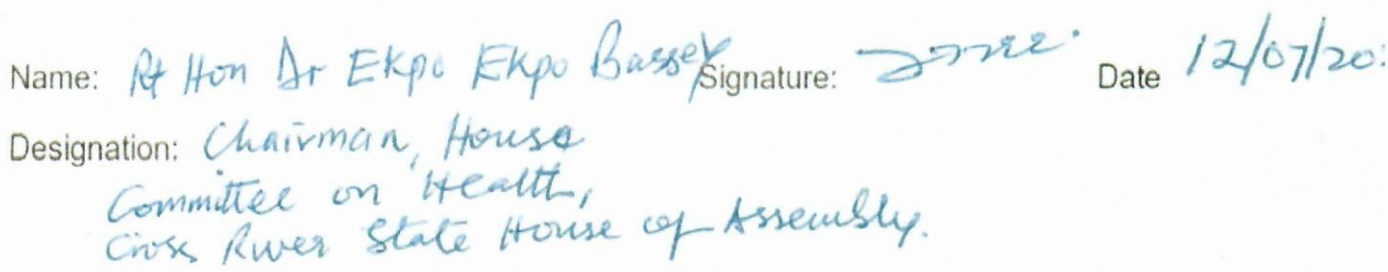 Name: Rt Hon Dr Ekpo Ekpo Bassey Signature: Date 12/07/20
Designation: Chairman, House
Committee on Health,
Cross River State House of Assembly.